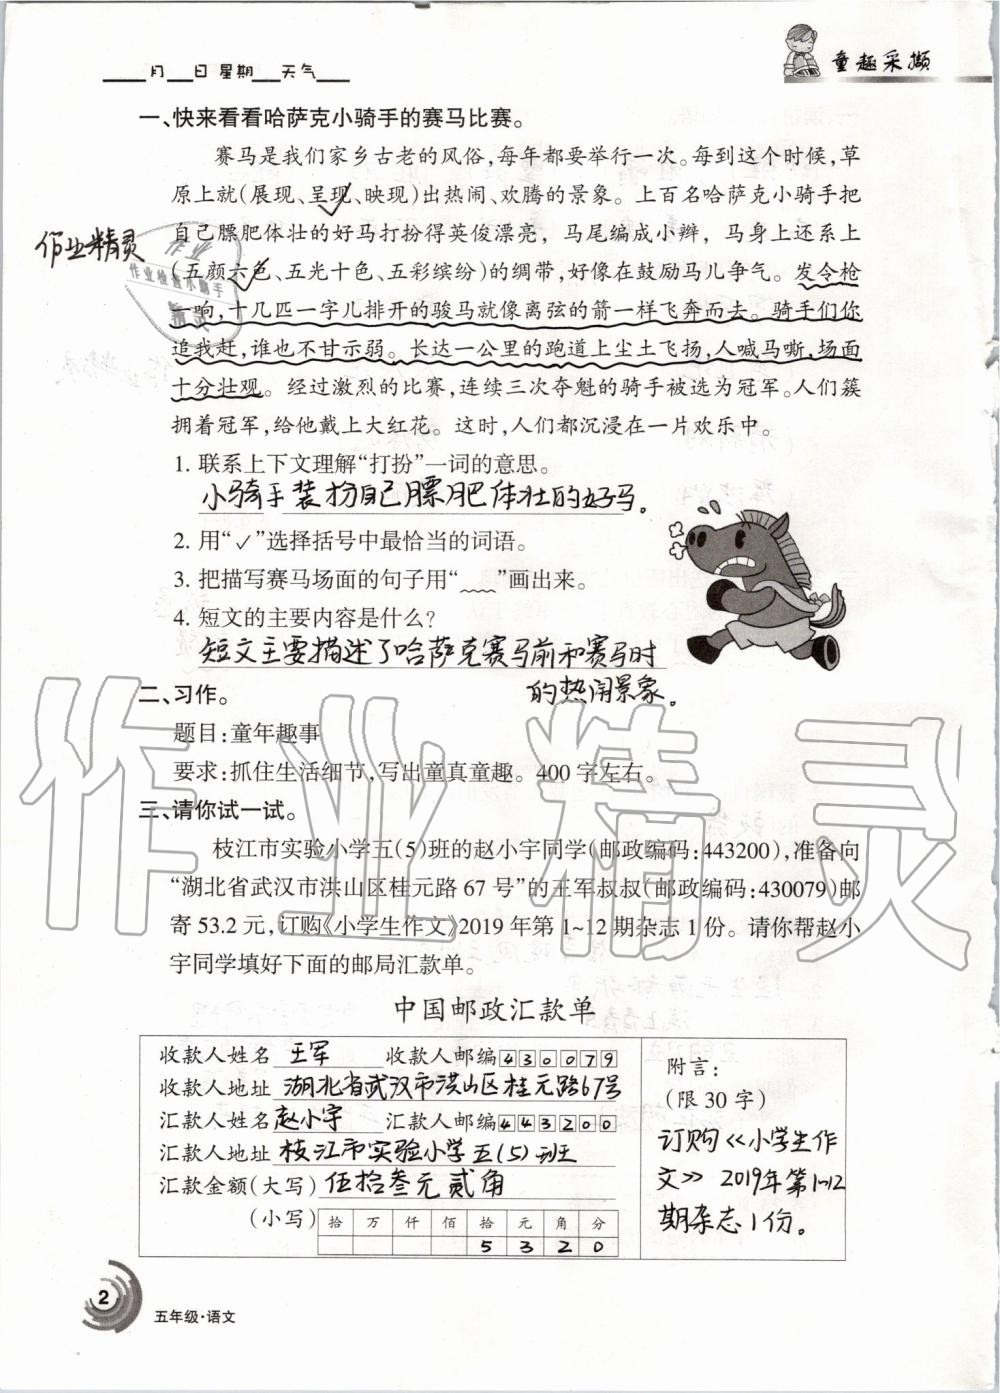 童趣采撷
____月____日 星期____天气____
一、快来看看哈萨克小骑手的赛马比赛。
赛马是我们家乡古老的风俗,每年都要举行一次。每到这个时候,草
原上就(展现、呈现✓、映现)出热闹、欢腾的景象。上百名哈萨克小骑手把
自己膘肥体壮的好马打扮得英俊漂亮,马尾编成小辫,马身上还系上
作业精灵
(五颜六色✓、五光十色、五彩缤纷)的绸带,好像在鼓励马儿争气。发令枪
一响,十几匹一字儿排开的骏马就像离弦的箭一样飞奔而去。骑手们你
追我赶,谁也不甘示弱。长达一公里的跑道上尘土飞扬,人喊马嘶,场面
十分壮观。经过激烈的比赛,连续三次夺魁的骑手被选为冠军。人们簇
拥着冠军,给他戴上大红花。这时,人们都沉浸在一片欢乐中。
作业
作业检查小助手
精灵
1. 联系上下文理解“打扮”一词的意思。
小骑手装扮自己膘肥体壮的好马。
2. 用“✓”选择括号中最恰当的词语。
3. 把描写赛马场面的句子用“﹏﹏”画出来。
4. 短文的主要内容是什么?
短文主要描述了哈萨克赛马前和赛马时
的热闹景象。
二、习作。
题目:童年趣事
要求:抓住生活细节,写出童真童趣。400字左右。
三、请你试一试。
枝江市实验小学五(5)班的赵小宇同学(邮政编码:443200),准备向
“湖北省武汉市洪山区桂元路67号”的王军叔叔(邮政编码:430079)邮
寄53.2元,订购《小学生作文》2019年第1~12期杂志1份。请你帮赵小
宇同学填好下面的邮局汇款单。
作业精灵
中国邮政汇款单
收款人姓名 王军 收款人邮编 430079
收款人地址 湖北省武汉市洪山区桂元路67号
汇款人姓名 赵小宇 汇款人邮编 443200
汇款人地址 枝江市实验小学五(5)班
汇款金额(大写) 伍拾叁元贰角
(小写) 拾 万 仟 佰 拾 元 角 分
5 3 2 0
附言:
(限30字)
订购《小学生作
文》2019年第1~12
期杂志1份。
2
五年级·语文